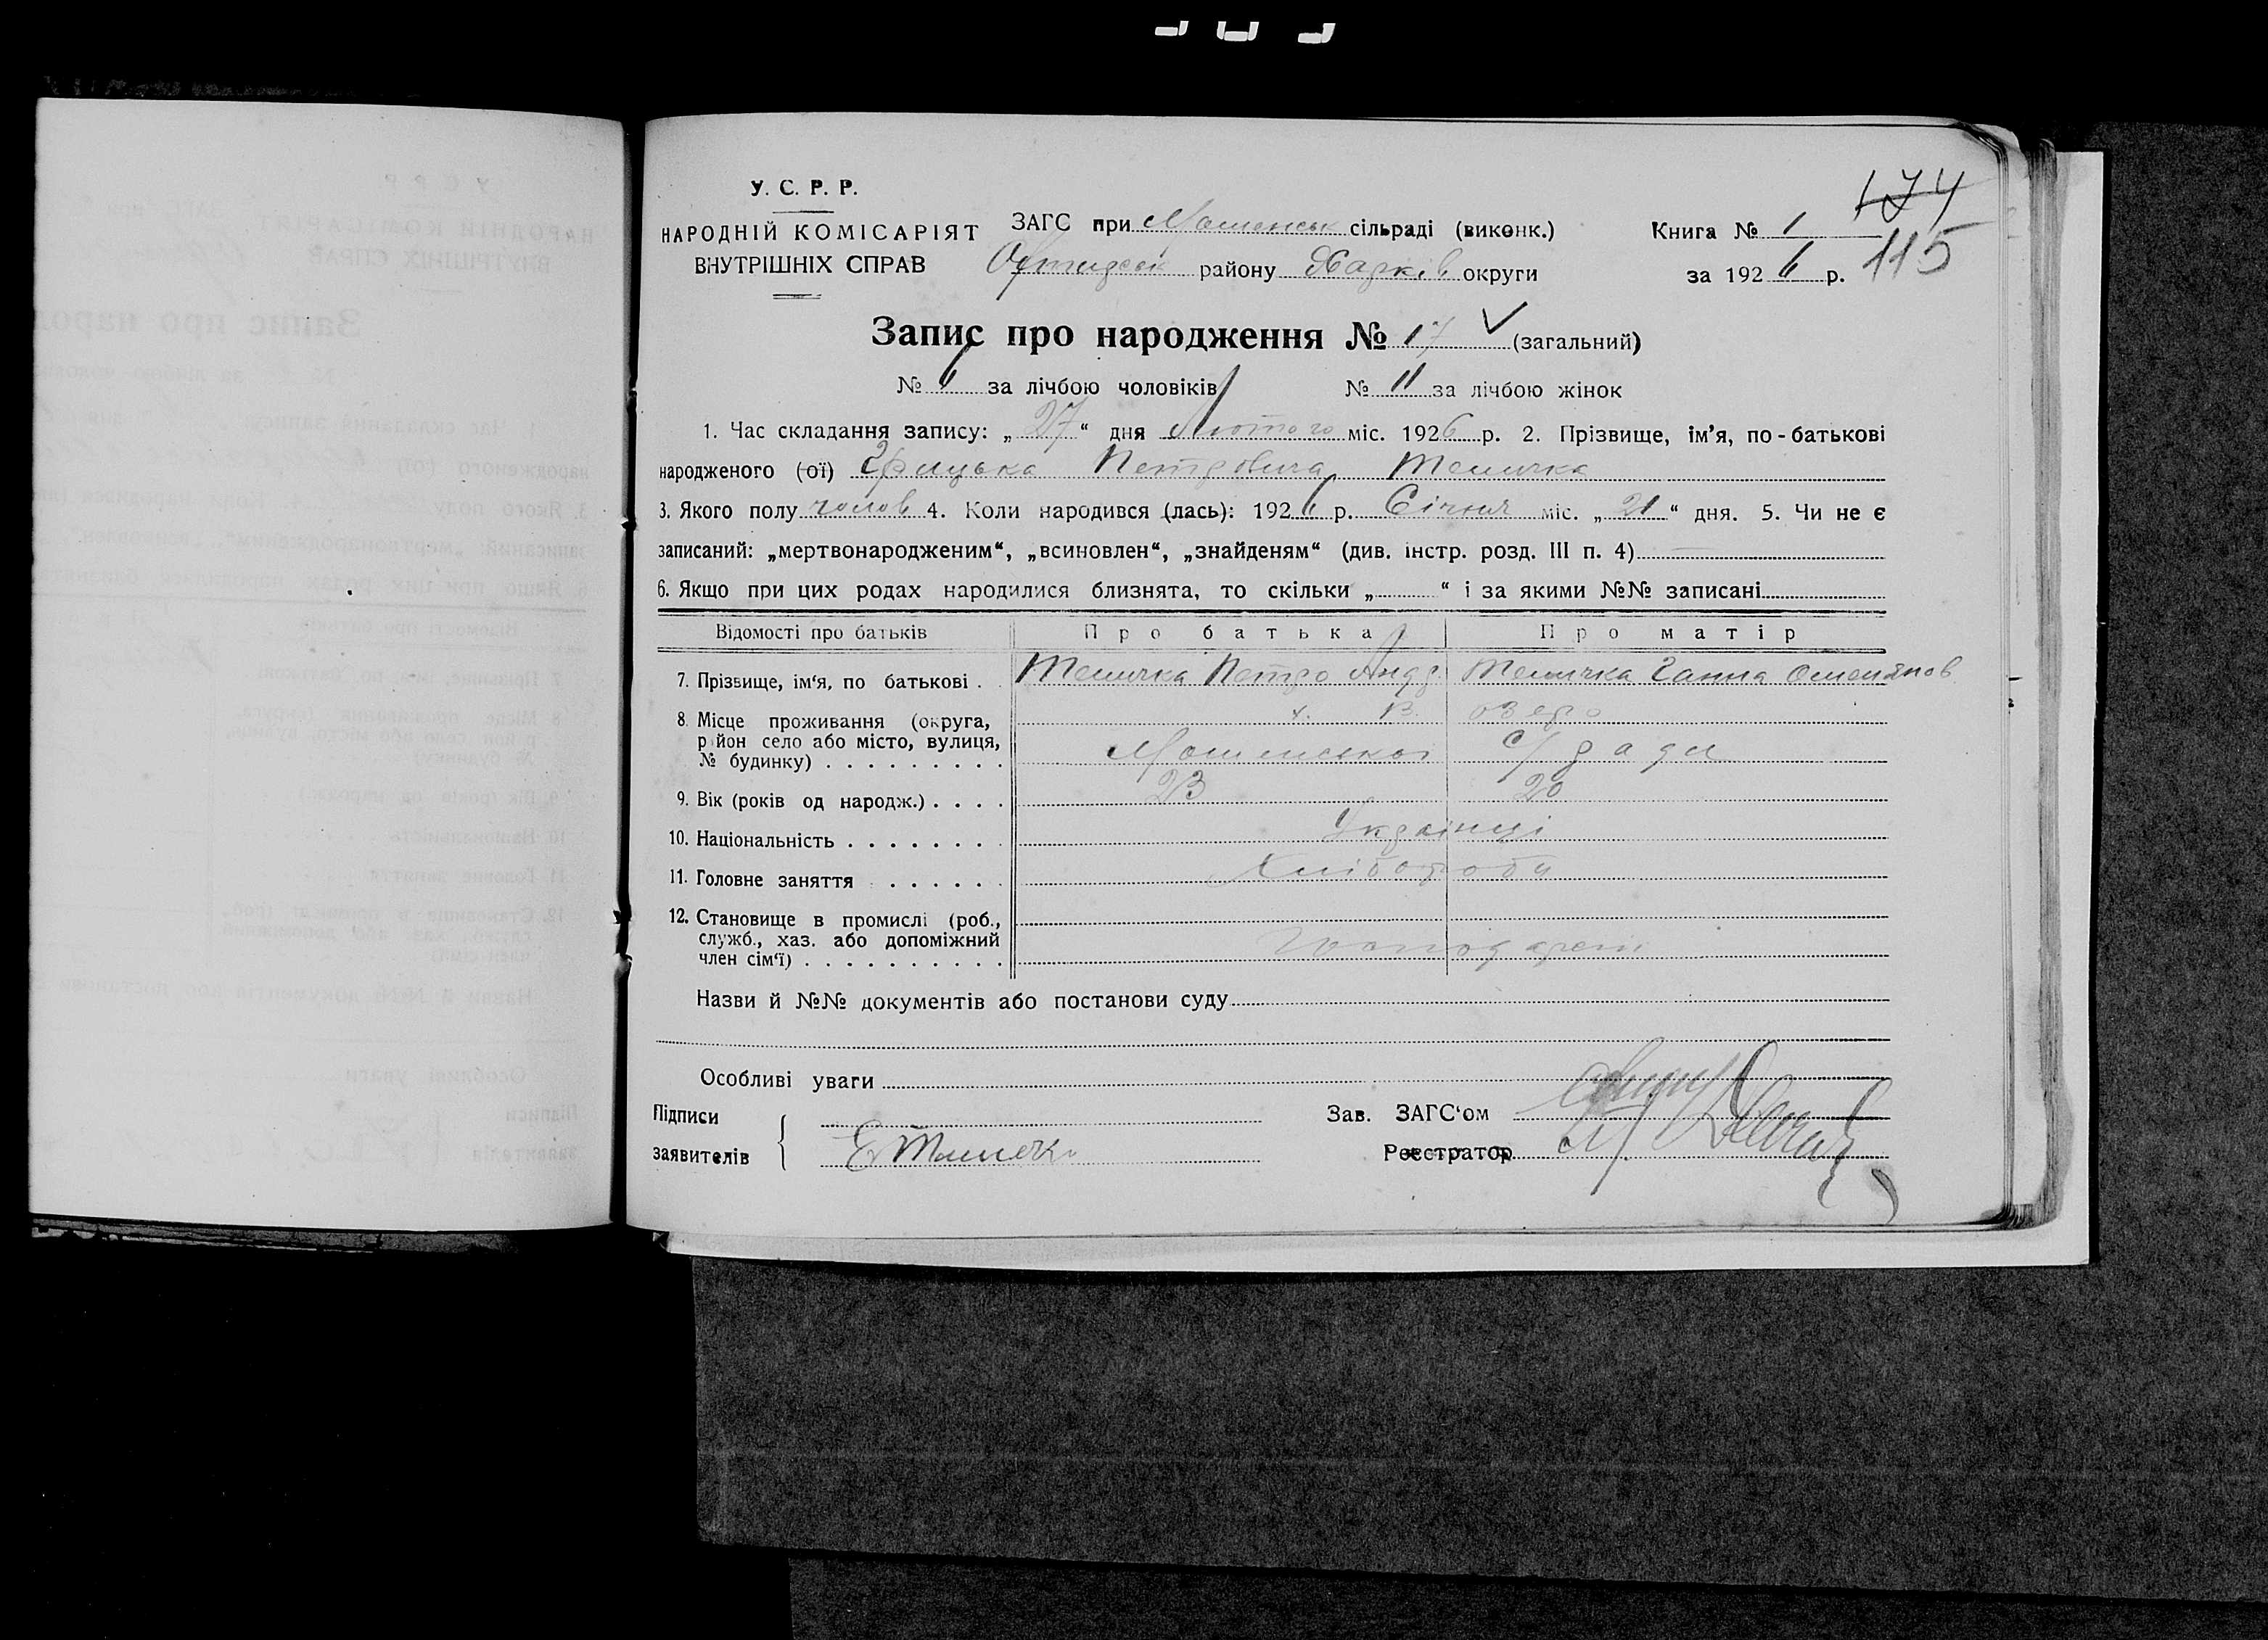 У. С. Р. Р.
НАРОДНІЙ КОМІСАРІЯТ
ВНУТРІШНІХ СПРАВ
ЗАГС при сільраді (виконк.)
району Харків округи
Книга № 1
за 1926 р.
174
115
Запис про народження № 17 (загальний)
№ 6 за лічбою чоловіків № 11 за лічбою жінок
1. Час складання запису: „27“ дня Лютого міс. 1926 р. 2. Прізвище, ім’я, по-батькові
народженого (ої) Грицька Петровича Темичка
3. Якого полу чолов 4. Коли народився (лась): 1926 р. Січня міс. „21“ дня. 5. Чи не є
записаний: „мертвонародженим“, „всиновлен“, „знайденям“ (див. інстр. розд. III п. 4)
6. Якщо при цих родах народилися близнята, то скільки „ “ і за якими №№ записані
Відомості про батьків Про батька Про матір
7. Прізвище, ім‘я, по батькові . . Темичка Петро Андр Темичка Ганна Омелянов
8. Місце проживання (округа, х. В. озеро
район село або місто, вулиця, с/ ради
№ будинку) . . . . . . . . .
9. Вік (років од народж.) . . . . 23 20
10. Національність . . . . . . . . Українці
11. Головне заняття . . . . . . Хлібороби
12. Становище в промислі (роб.,
служб., хаз. або допоміжний Господарет
член сім‘ї) . . . . . . . . . .
Назви й №№ документів або постанови суду
Особливі уваги
Підписи
заявителів
Зав. ЗАГС‘ом
Реєстратор